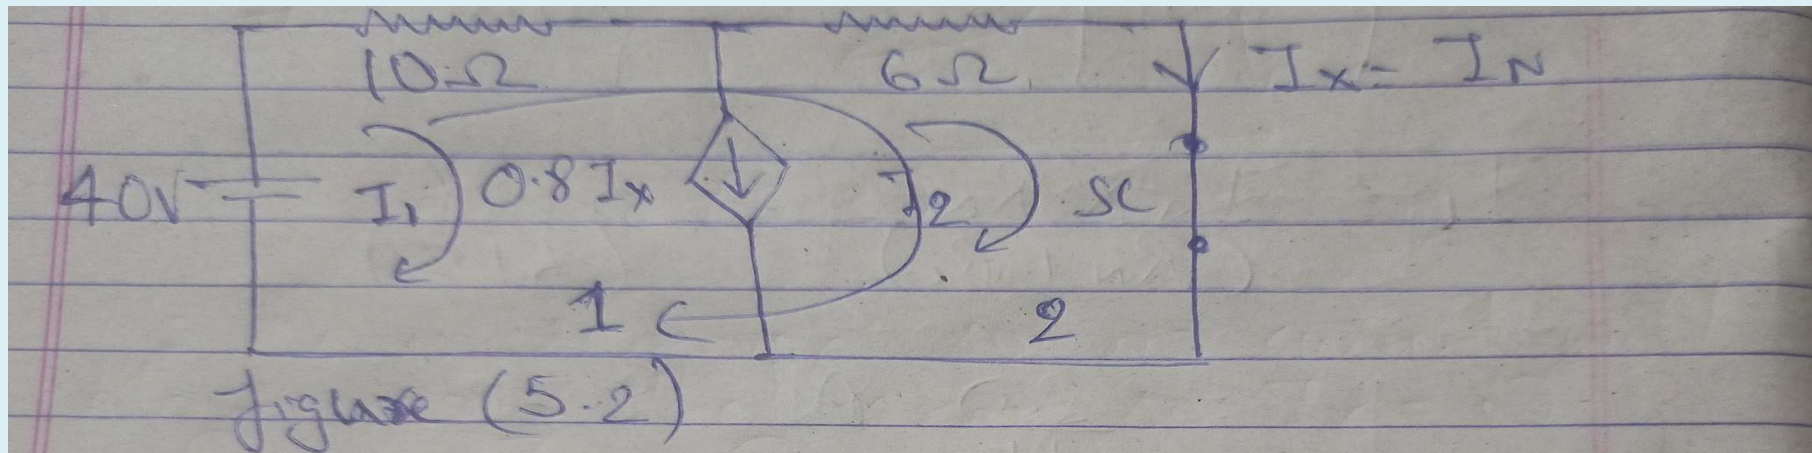 10Ω 6Ω Ix = IN
40V I1 0.8Ix I2 SC
1 2
figure (5.2)